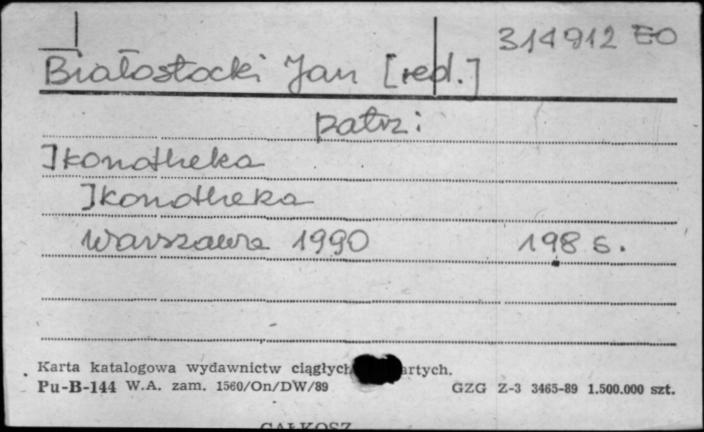 314912 EO
Białostocki Jan [red.]
patrz:
Ikonotheka
Ikonotheka
Warszawa 1990 198 s.
Karta katalogowa wydawnictw ciągłych artych.
Pu-B-144 W.A. zam. 1560/On/DW/89 GZG Z-3 3465-89 1.500.000 szt.